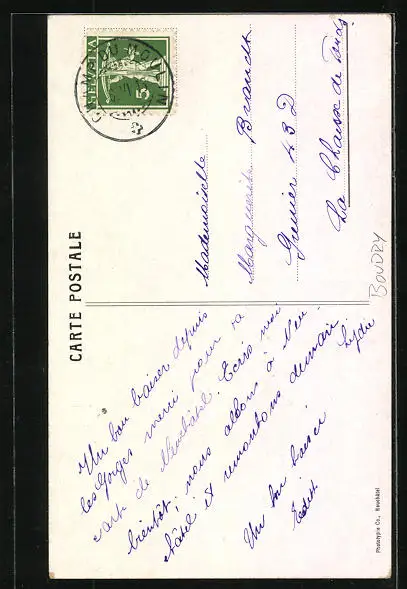 CARTE POSTALE
HELVETIA
5
Un bon baiser depuis
les Gorges merci pour ta
carte de Neuchâtel. Ecris moi
bientôt; nous allons à Neu-
châtel et remontons demain
Un bon baiser
Edith
Lydie
Mademoiselle
Marguerite Brandt
Grenier 43 D
La Chaux de Fonds
BOUDRY
Phototypie Co., Neuchâtel